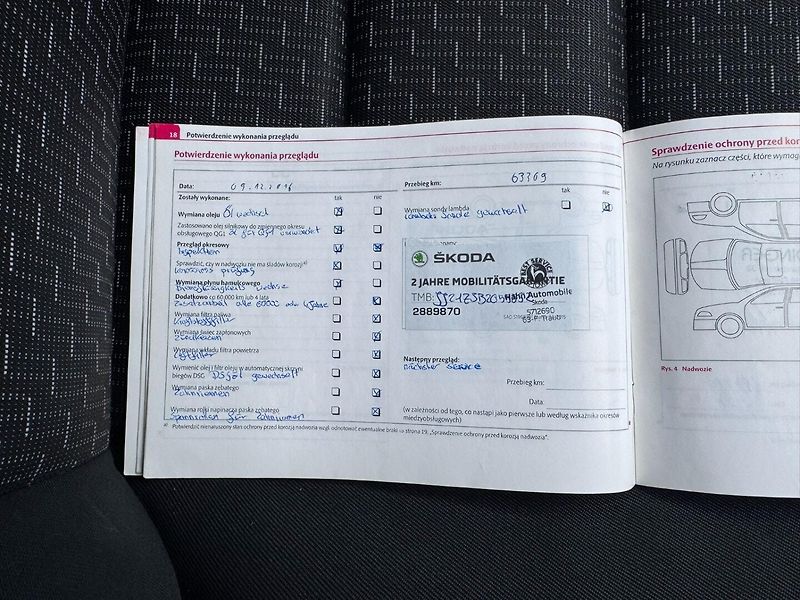 18 Potwierdzenie wykonania przeglądu
Potwierdzenie wykonania przeglądu
Data: 09.12.2016
Przebieg km: 63369
Zostały wykonane: tak nie
Wymiana oleju Öl wechsel
Zastosowano olej silnikowy do zmiennego okresu
obsługowego QG1
Przegląd okresowy
Inspektion
Sprawdzić, czy w nadwoziu nie ma śladów korozji a)
Wymiana płynu hamulcowego
Bremsflüssigkeits wechsel
Dodatkowo co 60,000 km lub 4 lata
Zusatzarbeit alle 60000 oder 4 Jahre
Wymiana filtra paliwa
Kraftstofffilter
Wymiana świec zapłonowych
Zündkerzen
Wymiana wkładu filtra powietrza
Luftfilter
Wymienić olej i filtr oleju w automatycznej skrzyni
biegów DSG DSG öl gewechselt
Wymiana paska zębatego
Zahnriemen
Wymiana rolki napinacza paska zębatego
Spannrollen für Zahnriemen
a) Potwierdzić nienaruszony stan ochrony przed korozją nadwozia wzgl. odnotować ewentualne braki ⇒ strona 19, „Sprawdzenie ochrony przed korozją nadwozia”.
tak nie
Wymiana sondy lambda
Lambda Sonde gewechselt
ŠKODA
BEST SERVICE
2 JAHRE MOBILITÄTSGARANTIE
TMB:
Automobile
Skoda
2889870
572690
Następny przegląd:
nächster Service
Przebieg km:
Data:
(w zależności od tego, co nastąpi jako pierwsze lub według wskaźnika okresów
międzyobsługowych)
Sprawdzenie ochrony przed kor
Na rysunku zaznacz części, które wymag
Rys. 4 Nadwozie